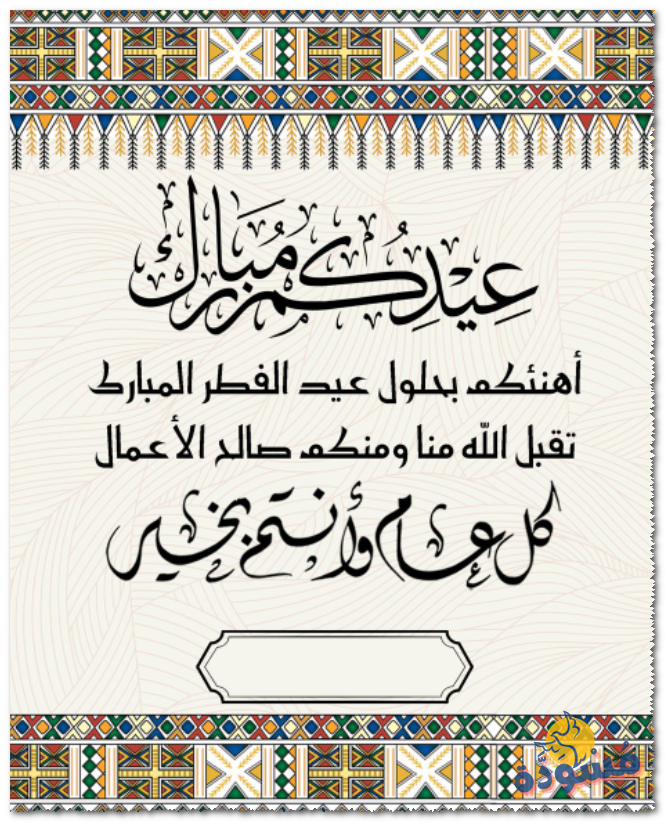 عِيْدِكُم مُبَارَك
أهنئكم بحلول عيد الفطر المبارك
تقبل الله منا ومنكم صالح الأعمال
كل عام وأنتم بخير
مُسْوَدَّة